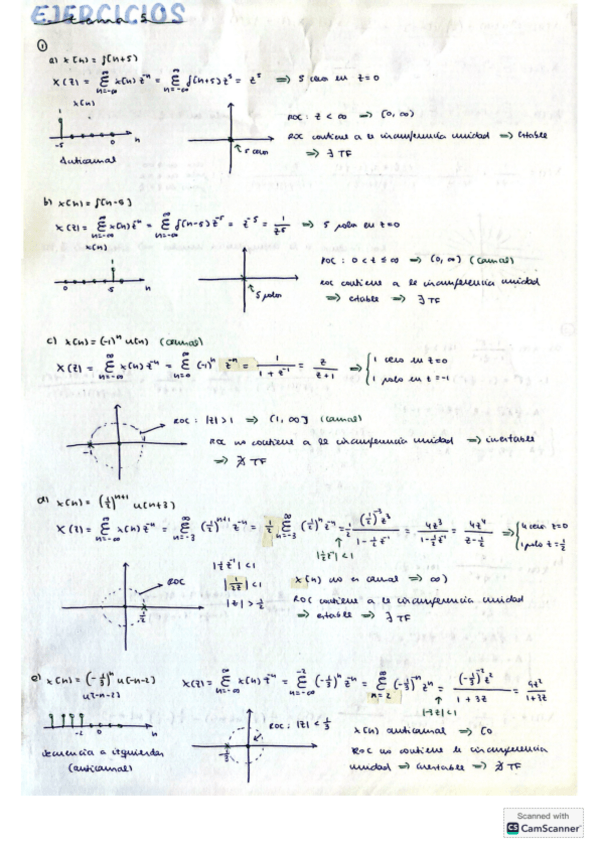 EJERCICIOS
tema 5
①
a) x(n) = δ(n+5)
X(z) = Σ_{n=-∞}^{∞} x(n) z^{-n} = Σ_{n=-∞}^{∞} δ(n+5) z^5 = z^5 ⇒ 5 ceros en z=0
x(n)
-5 n
Anticausal
5 ceros
ROC: z < ∞ ⇒ [0, ∞)
ROC contiene a la circunferencia unidad ⇒ estable
⇒ ∃ TF
b) x(n) = δ(n-5)
X(z) = Σ_{n=-∞}^{∞} x(n) z^{-n} = Σ_{n=-∞}^{∞} δ(n-5) z^{-5} = z^{-5} = 1/z^5 ⇒ 5 polos en z=0
x(n)
0 5 n
5 polos
ROC: 0 < z ≤ ∞ ⇒ (0, ∞) (causal)
ROC contiene a la circunferencia unidad
⇒ estable ⇒ ∃ TF
c) x(n) = (-1)^n u(n) (causal)
X(z) = Σ_{n=-∞}^{∞} x(n) z^{-n} = Σ_{n=0}^{∞} (-1)^n z^{-n} = 1/(1+z^{-1}) = z/(z+1) ⇒ { 1 cero en z=0
1 polo en z=-1
-1
ROC: |z|>1 ⇒ (1, ∞] (causal)
ROC no contiene a la circunferencia unidad ⇒ inestable
⇒ ∄ TF
d) x(n) = (1/2)^{n+1} u(n+3)
X(z) = Σ_{n=-∞}^{∞} x(n) z^{-n} = Σ_{n=-3}^{∞} (1/2)^{n+1} z^{-n} = 1/2 Σ_{n=-3}^{∞} (1/2)^n z^{-n} = 1/2 (1/2)^{-3} z^3/(1-1/2 z^{-1}) = 4z^3/(1-1/2 z^{-1}) = 4z^4/(z-1/2) ⇒ { 4 ceros z=0
1 polo z=1/2
|1/2 z^{-1}|<1
ROC
1/2
|1/2 z^{-1}|<1
|1/2z|<1
|z|>1/2
x(n) no es causal ⇒ ∞)
ROC contiene a la circunferencia unidad
⇒ estable ⇒ ∃ TF
e) x(n) = (-1/3)^n u(-n-2)
X(z) = Σ_{n=-∞}^{∞} x(n) z^{-n} = Σ_{n=-∞}^{-2} (-1/3)^n z^{-n} = Σ_{n=2}^{∞} (-1/3)^{-n} z^n = (-1/3)^{-2} z^2/(1+3z) = 9z^2/(1+3z)
|-3z|<1
u(-n-2)
-2 0 n
secuencia a izquierdas
(anticausal)
ROC: |z|<1/3
-1/3
x(n) anticausal ⇒ [0
ROC no contiene la circunferencia
unidad ⇒ inestable ⇒ ∄ TF
Scanned with
CS CamScanner